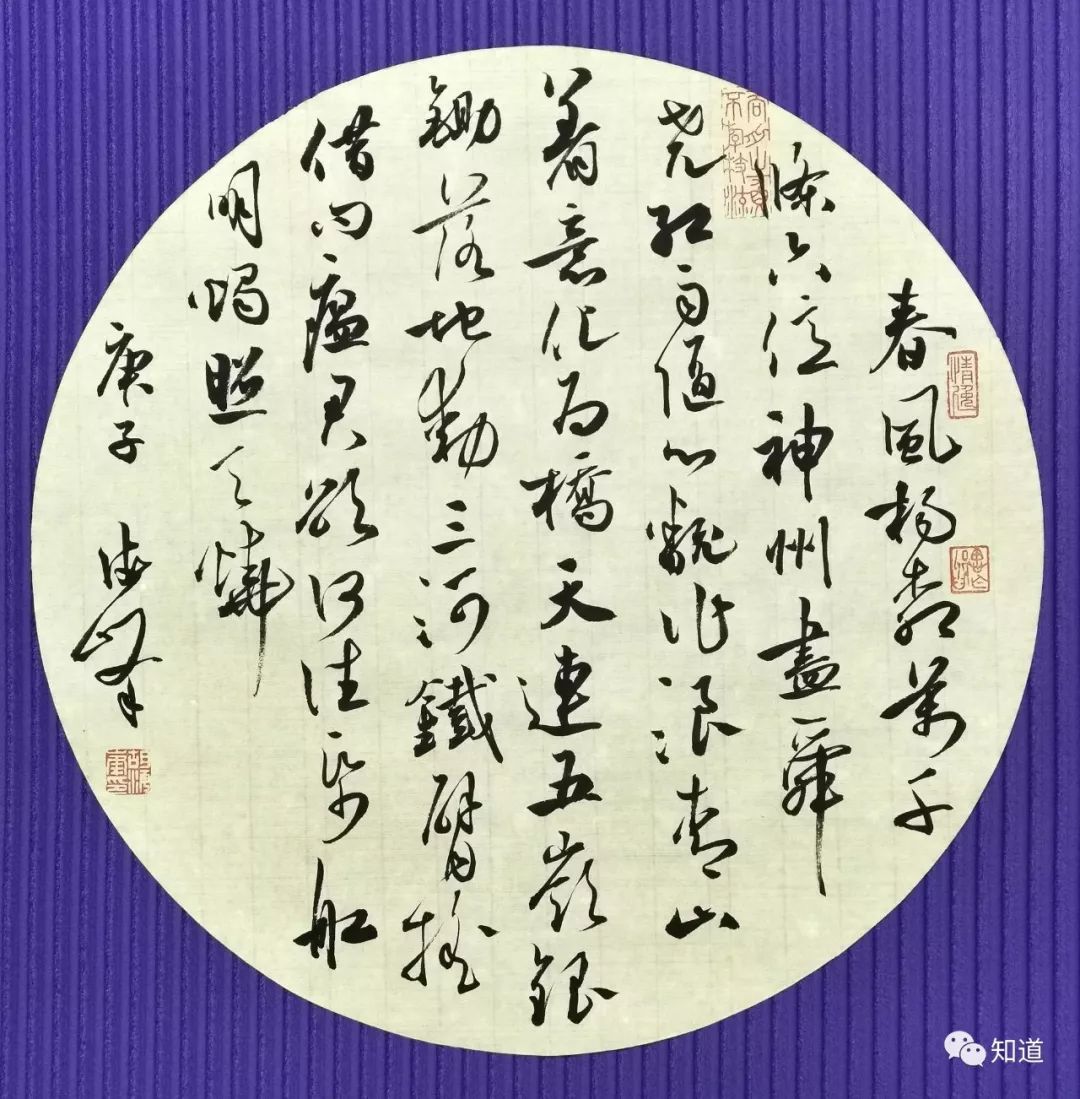 春風楊柳萬千
條六億神州盡舜
堯紅雨隨心翻作浪青山
着意化為橋天連五嶺銀
鋤落地動三河鐵臂搖
借問瘟君欲何往紙船
明燭照天燒
庚子
知道